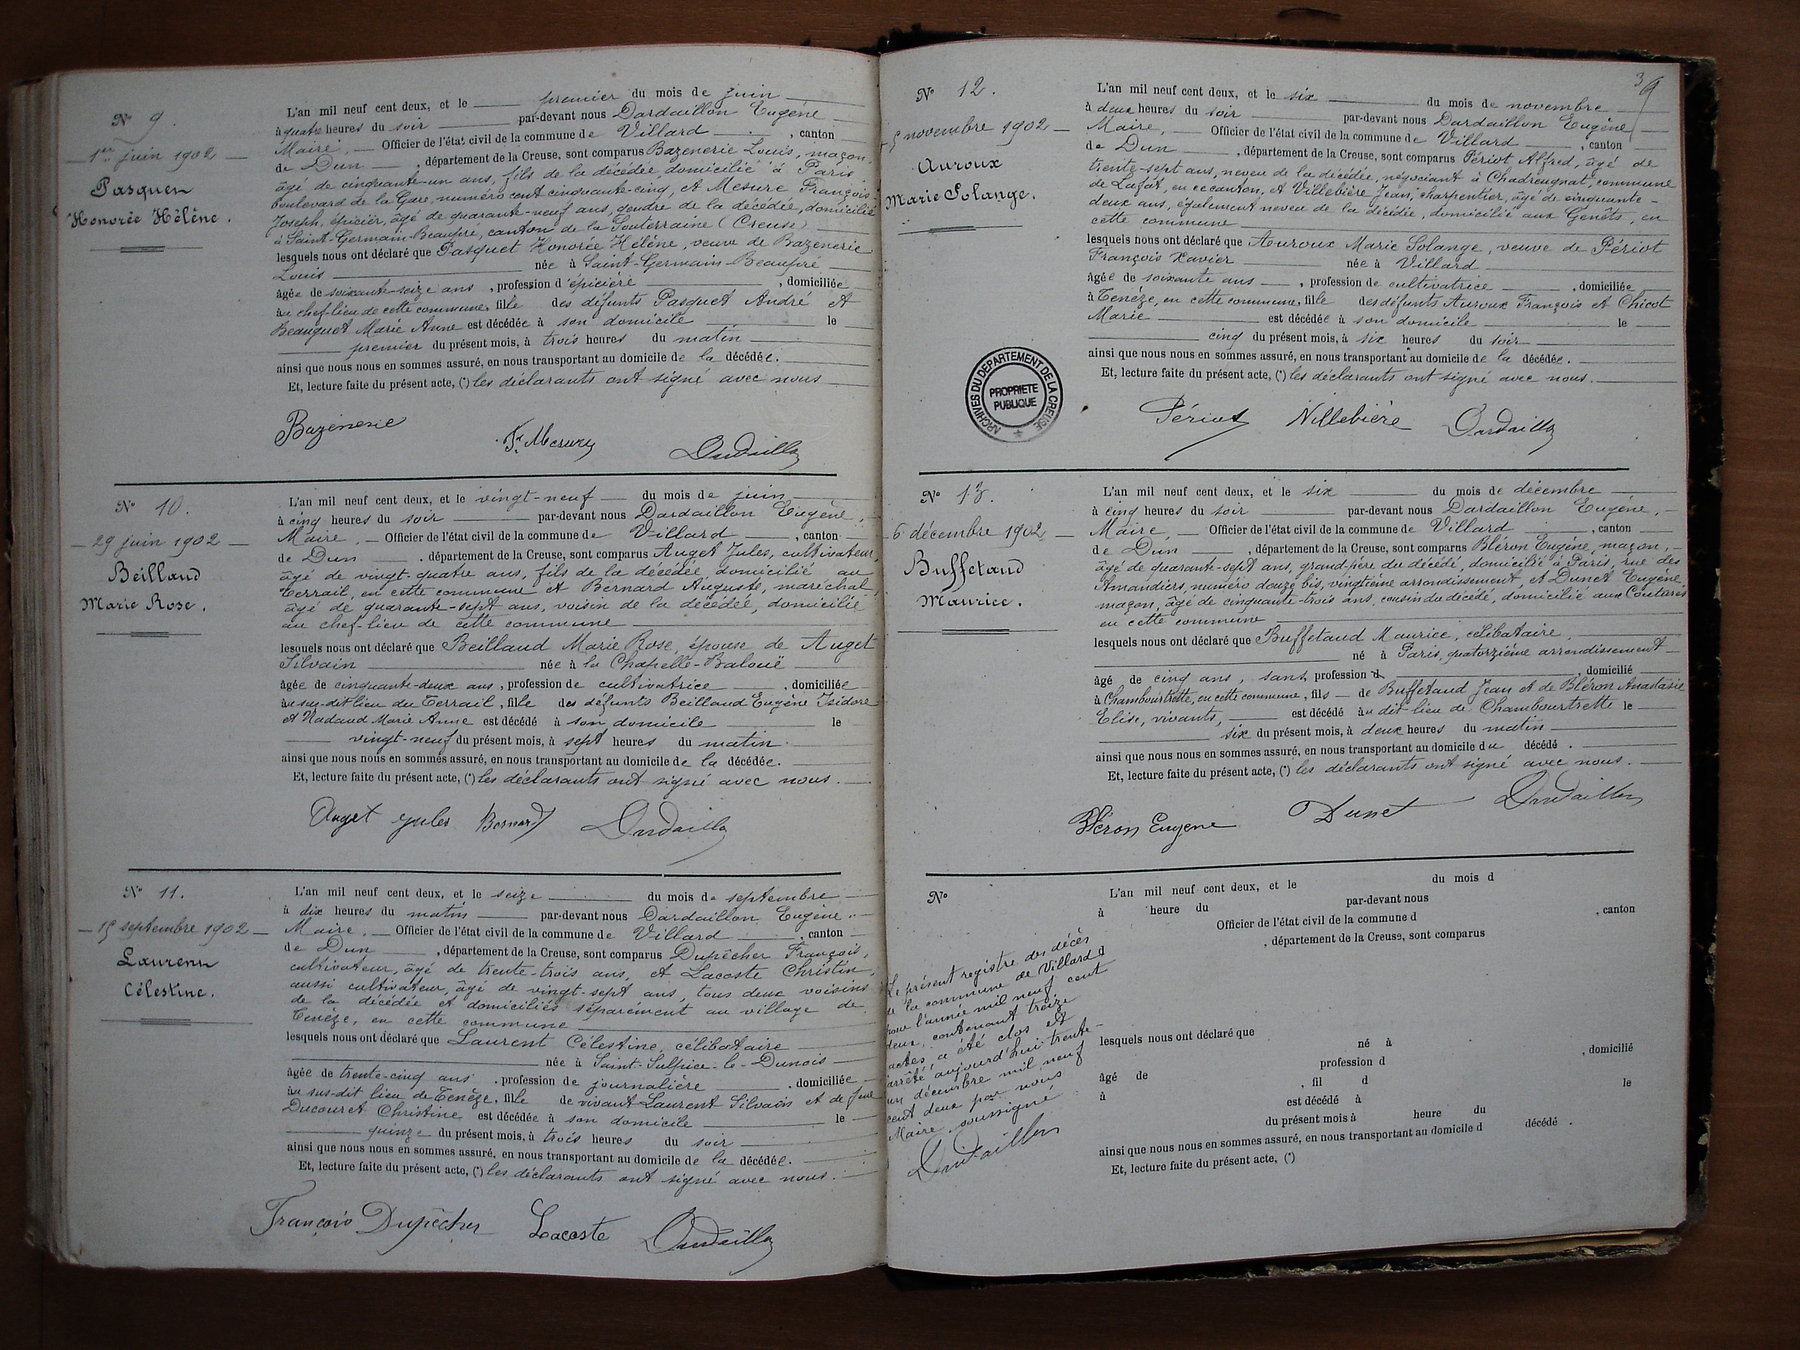 N° 9.
1er juin 1902
Pasquet
Honorée Hélène.
L'an mil neuf cent deux, et le premier du mois de juin
à quatre heures du soir par-devant nous Dardaillon Eugène
Maire. Officier de l'état civil de la commune de Villard, canton
de Dun, département de la Creuse, sont comparus Bazenerie Louis, maçon,
âgé de cinquante-un ans, fils de la décédée domicilié à Paris
boulevard de la Gare, numéro cent cinquante-cinq, et Mesure François
Joseph, épicier, âgé de quarante-neuf ans, gendre de la décédée, domicilié
à Saint-Germain-Beaupré, canton de la Souterraine (Creuse)
lesquels nous ont déclaré que Pasquet Honorée Hélène, veuve de Bazenerie
Louis née à Saint-Germain-Beaupré
âgée de soixante-seize ans, profession d'épicière, domiciliée
au chef-lieu de cette commune, fille des défunts Pasquet André et
Beauquet Marie Anne est décédée à son domicile le
premier du présent mois, à trois heures du matin
ainsi que nous nous en sommes assuré, en nous transportant au domicile de la décédée.
Et, lecture faite du présent acte, (*) les déclarants ont signé avec nous
Bazenerie F. Mesure Dardaillon
N° 10.
29 juin 1902
Beillaud
Marie Rose.
L'an mil neuf cent deux, et le vingt-neuf du mois de juin
à cinq heures du soir par-devant nous Dardaillon Eugène,
Maire, Officier de l'état civil de la commune de Villard, canton
de Dun, département de la Creuse, sont comparus Auget Jules, cultivateur,
âgé de vingt-quatre ans, fils de la décédée domicilié au
Terrail, en cette commune et Bernard Auguste, maréchal,
âgé de quarante-sept ans, voisin de la décédée, domicilié
au chef-lieu de cette commune
lesquels nous ont déclaré que Beillaud Marie Rose, épouse de Auget
Silvain née à la Chapelle-Baloüe
âgée de cinquante-deux ans, profession de cultivatrice, domiciliée
au sus-dit lieu du Terrail, fille des défunts Beillaud Eugène Isidore
et Nadaud Marie Anne est décédé à son domicile le
vingt-neuf du présent mois, à sept heures du matin.
ainsi que nous nous en sommes assuré, en nous transportant au domicile de la décédée.
Et, lecture faite du présent acte, (*) les déclarants ont signé avec nous.
Auget jules Bernard Dardaillon
N° 11.
15 septembre 1902
Laurent
Célestine.
L'an mil neuf cent deux, et le seize du mois de septembre
à dix heures du matin par-devant nous Dardaillon Eugène.
Maire, Officier de l'état civil de la commune de Villard, canton
de Dun, département de la Creuse, sont comparus Dupêcher François,
cultivateur, âgé de trente-trois ans, et Lacoste Christin,
aussi cultivateur, âgé de vingt-sept ans, tous deux voisins
de la décédée et domiciliés séparément au village de
Tenèze, en cette commune
lesquels nous ont déclaré que Laurent Célestine, célibataire
née à Saint-Sulpice-le-Dunois
âgée de trente-cinq ans, profession de journalière, domiciliée
au sus-dit lieu de Tenèze, fille de vivant Laurent Silvain et de feue
Ducouret Christine est décédée à son domicile le
quinze du présent mois, à trois heures du soir
ainsi que nous nous en sommes assuré, en nous transportant au domicile de la décédée.
Et, lecture faite du présent acte, (*) les déclarants ont signé avec nous.
François Dupêcher Lacoste Dardaillon
N° 12.
5 novembre 1902
Auroux
Marie Solange.
L'an mil neuf cent deux, et le six du mois de novembre
à deux heures du soir par-devant nous Dardaillon Eugène
Maire, Officier de l'état civil de la commune de Villard, canton
de Dun, département de la Creuse, sont comparus Périot Alfred, âgé de
trente-sept ans, neveu de la décédée, négociant à Chadreugnat, commune
de Lafat, en ce canton, et Villebière Jean, charpentier, âgé de cinquante-
deux ans, également neveu de la décédée, domicilié aux Genêts, en
cette commune
lesquels nous ont déclaré que Auroux Marie Solange, veuve de Périot
François Xavier née à Villard
âgée de soixante ans, profession de cultivatrice, domiciliée
à Tenèze, en cette commune, fille des défunts Auroux François et Chicot
Marie est décédée à son domicile le
cinq du présent mois, à six heures du soir
ainsi que nous nous en sommes assuré, en nous transportant au domicile de la décédée.
Et, lecture faite du présent acte, (*) les déclarants ont signé avec nous.
ARCHIVES DU DÉPARTEMENT DE LA CREUSE
PROPRIETE
PUBLIQUE
Périot Villebière Dardaillon
N° 13.
6 décembre 1902
Buffetaud
Maurice.
L'an mil neuf cent deux, et le six du mois de décembre
à cinq heures du soir par-devant nous Dardaillon Eugène,
Maire, Officier de l'état civil de la commune de Villard, canton
de Dun, département de la Creuse, sont comparus Bléron Eugène, maçon,
âgé de quarante-sept ans, grand-père du décédé, domicilié à Paris, rue des
Amandiers, numéro douze bis, vingtième arrondissement, et Dunet Eugène,
maçon, âgé de cinquante-trois ans, cousin du décédé, domicilié aux Coutures
en cette commune
lesquels nous ont déclaré que Buffetaud Maurice, célibataire
né à Paris, quatorzième arrondissement
âgé de cinq ans, sans profession d domicilié
à Chambourtrette, en cette commune, fils de Buffetaud Jean et de Bléron Anastasie
Elise, vivants, est décédé au dit lieu de Chambourtrette le
six du présent mois, à deux heures du matin
ainsi que nous nous en sommes assuré, en nous transportant au domicile du décédé.
Et, lecture faite du présent acte, (*) les déclarants ont signé avec nous.
Bléron Eugène Dunet Dardaillon
N°
L'an mil neuf cent deux, et le du mois d
à heure du par-devant nous
Officier de l'état civil de la commune d, canton
, département de la Creuse, sont comparus
lesquels nous ont déclaré que
né à
âgé de profession d, domicilié
à, fil d
est décédé à le
du présent mois à heure du
ainsi que nous nous en sommes assuré, en nous transportant au domicile d décédé.
Et, lecture faite du présent acte, (*)
Le présent registre des décès
de la commune de Villard
pour l'année mil neuf cent
deux, contenant treize
actes a été clos et
arrêté aujourd'hui trente-
un décembre mil neuf
cent deux par nous
Maire soussigné
Dardaillon